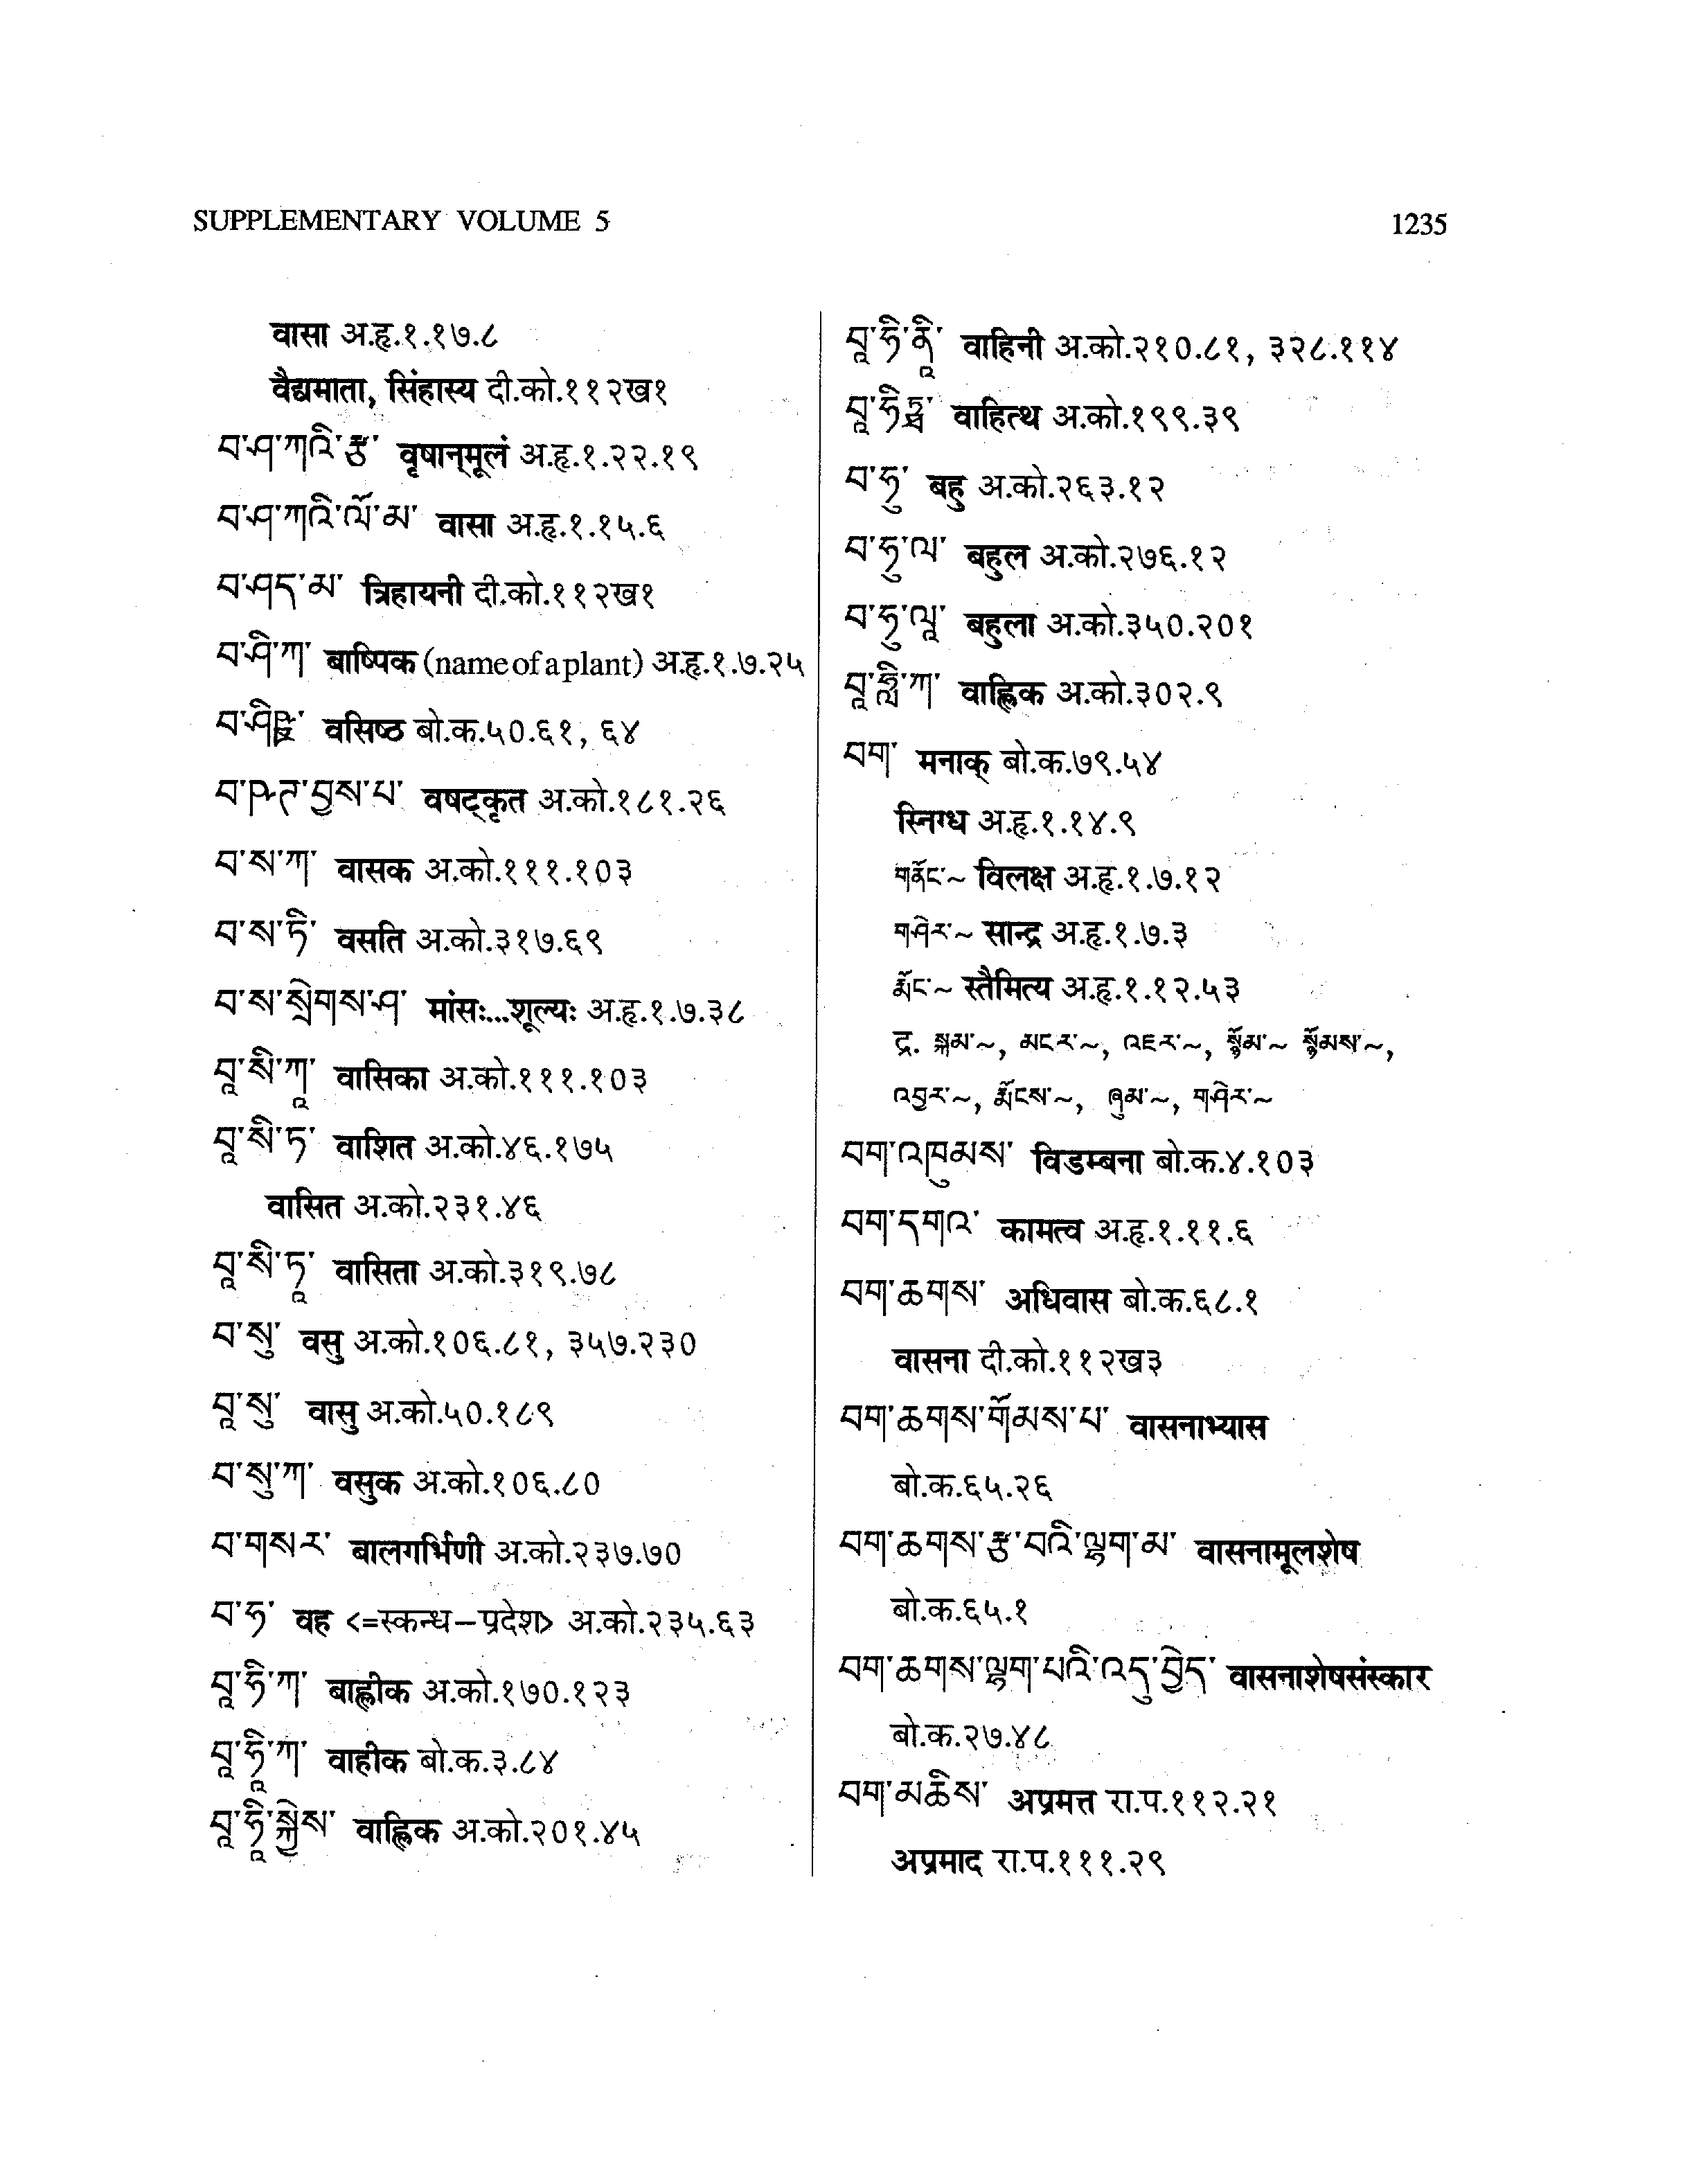 SUPPLEMENTARY VOLUME 5
1235
वासा अ.हृ.१.१७.८
वैद्यमाता, सिंहास्य दी.को.११२ख१
བ་ཤ་ཀའི་རྩ་ वृषान्मूलं अ.हृ.१.२२.१९
བ་ཤ་ཀའི་ལོ་མ་ वासा अ.हृ.१.१५.६
བ་ཤད་མ་ त्रिहायनी दी.को.११२ख१
བ་ཤི་ཀ་ बाष्पिक (name of a plant) अ.हृ.१.७.२५
བ་ཤིཥྛ་ वसिष्ठ बो.क.५०.६१, ६४
བ་ཥ་ཊ་བྱས་པ་ वषट्कृत अ.को.१८१.२६
བ་ས་ཀ་ वासक अ.को.१११.१०३
བ་ས་ཏི་ वसति अ.को.३१७.६९
བ་ས་སྲེགས་ཤ་ मांसः...शूल्यः अ.हृ.१.७.३८
བཱ་སི་ཀཱ་ वासिका अ.को.१११.१०३
བཱ་སི་ཏ་ वाशित अ.को.४६.१७५
वासित अ.को.२३१.४६
བཱ་སི་ཏཱ་ वासिता अ.को.३१९.७८
བ་སུ་ वसु अ.को.१०६.८१, ३५७.२३०
བཱ་སུ་ वासु अ.को.५०.१८९
བ་སུ་ཀ་ वसुक अ.को.१०६.८०
བ་གསར་ बालगर्भिणी अ.को.२३७.७०
བ་ཧ་ वह <=स्कन्ध–प्रदेश> अ.को.२३५.६३
བཱ་ཧི་ཀ་ बाह्लीक अ.को.१७०.१२३
བཱ་ཧཱི་ཀ་ वाहीक बो.क.३.८४
བཱ་ཧཱི་སྐྱེས་ वाह्लिक अ.को.२०१.४५
བཱ་ཧི་ནཱི་ वाहिनी अ.को.२१०.८१, ३२८.११४
བཱ་ཧིཏྠ་ वाहित्थ अ.को.१९९.३९
བ་ཧུ་ बहु अ.को.२६३.१२
བ་ཧུ་ལ་ बहुल अ.को.२७६.१२
བ་ཧུ་ལཱ་ बहुला अ.को.३५०.२०१
བཱ་ཧླི་ཀ་ वाह्लिक अ.को.३०२.९
བག་ मनाक् बो.क.७९.५४
स्निग्ध अ.हृ.१.१४.९
གནོང་~ विलक्ष अ.हृ.१.७.१२
གཤེར་~ सान्द्र अ.हृ.१.७.३
རྨོང་~ स्तैमित्य अ.हृ.१.१२.५३
द्र. སྐམ་~, མངར་~, འཇར་~, སྙོམ་~ སྙོམས་~,
འབྱར་~, རྨོངས་~, ཞུམ་~, གཤེར་~
བག་འཁུམས་ विडम्बना बो.क.४.१०३
བག་དགའ་ कामत्व अ.हृ.१.११.६
བག་ཆགས་ अधिवास बो.क.६८.१
वासना दी.को.११२ख३
བག་ཆགས་གོམས་པ་ वासनाभ्यास
बो.क.६५.२६
བག་ཆགས་རྩ་བའི་ལྷག་མ་ वासनामूलशेष
बो.क.६५.१
བག་ཆགས་ལྷག་པའི་འདུ་བྱེད་ वासनाशेषसंस्कार
बो.क.२७.४८
བག་མཆིས་ अप्रमत्त रा.प.११२.२१
अप्रमाद रा.प.१११.२९